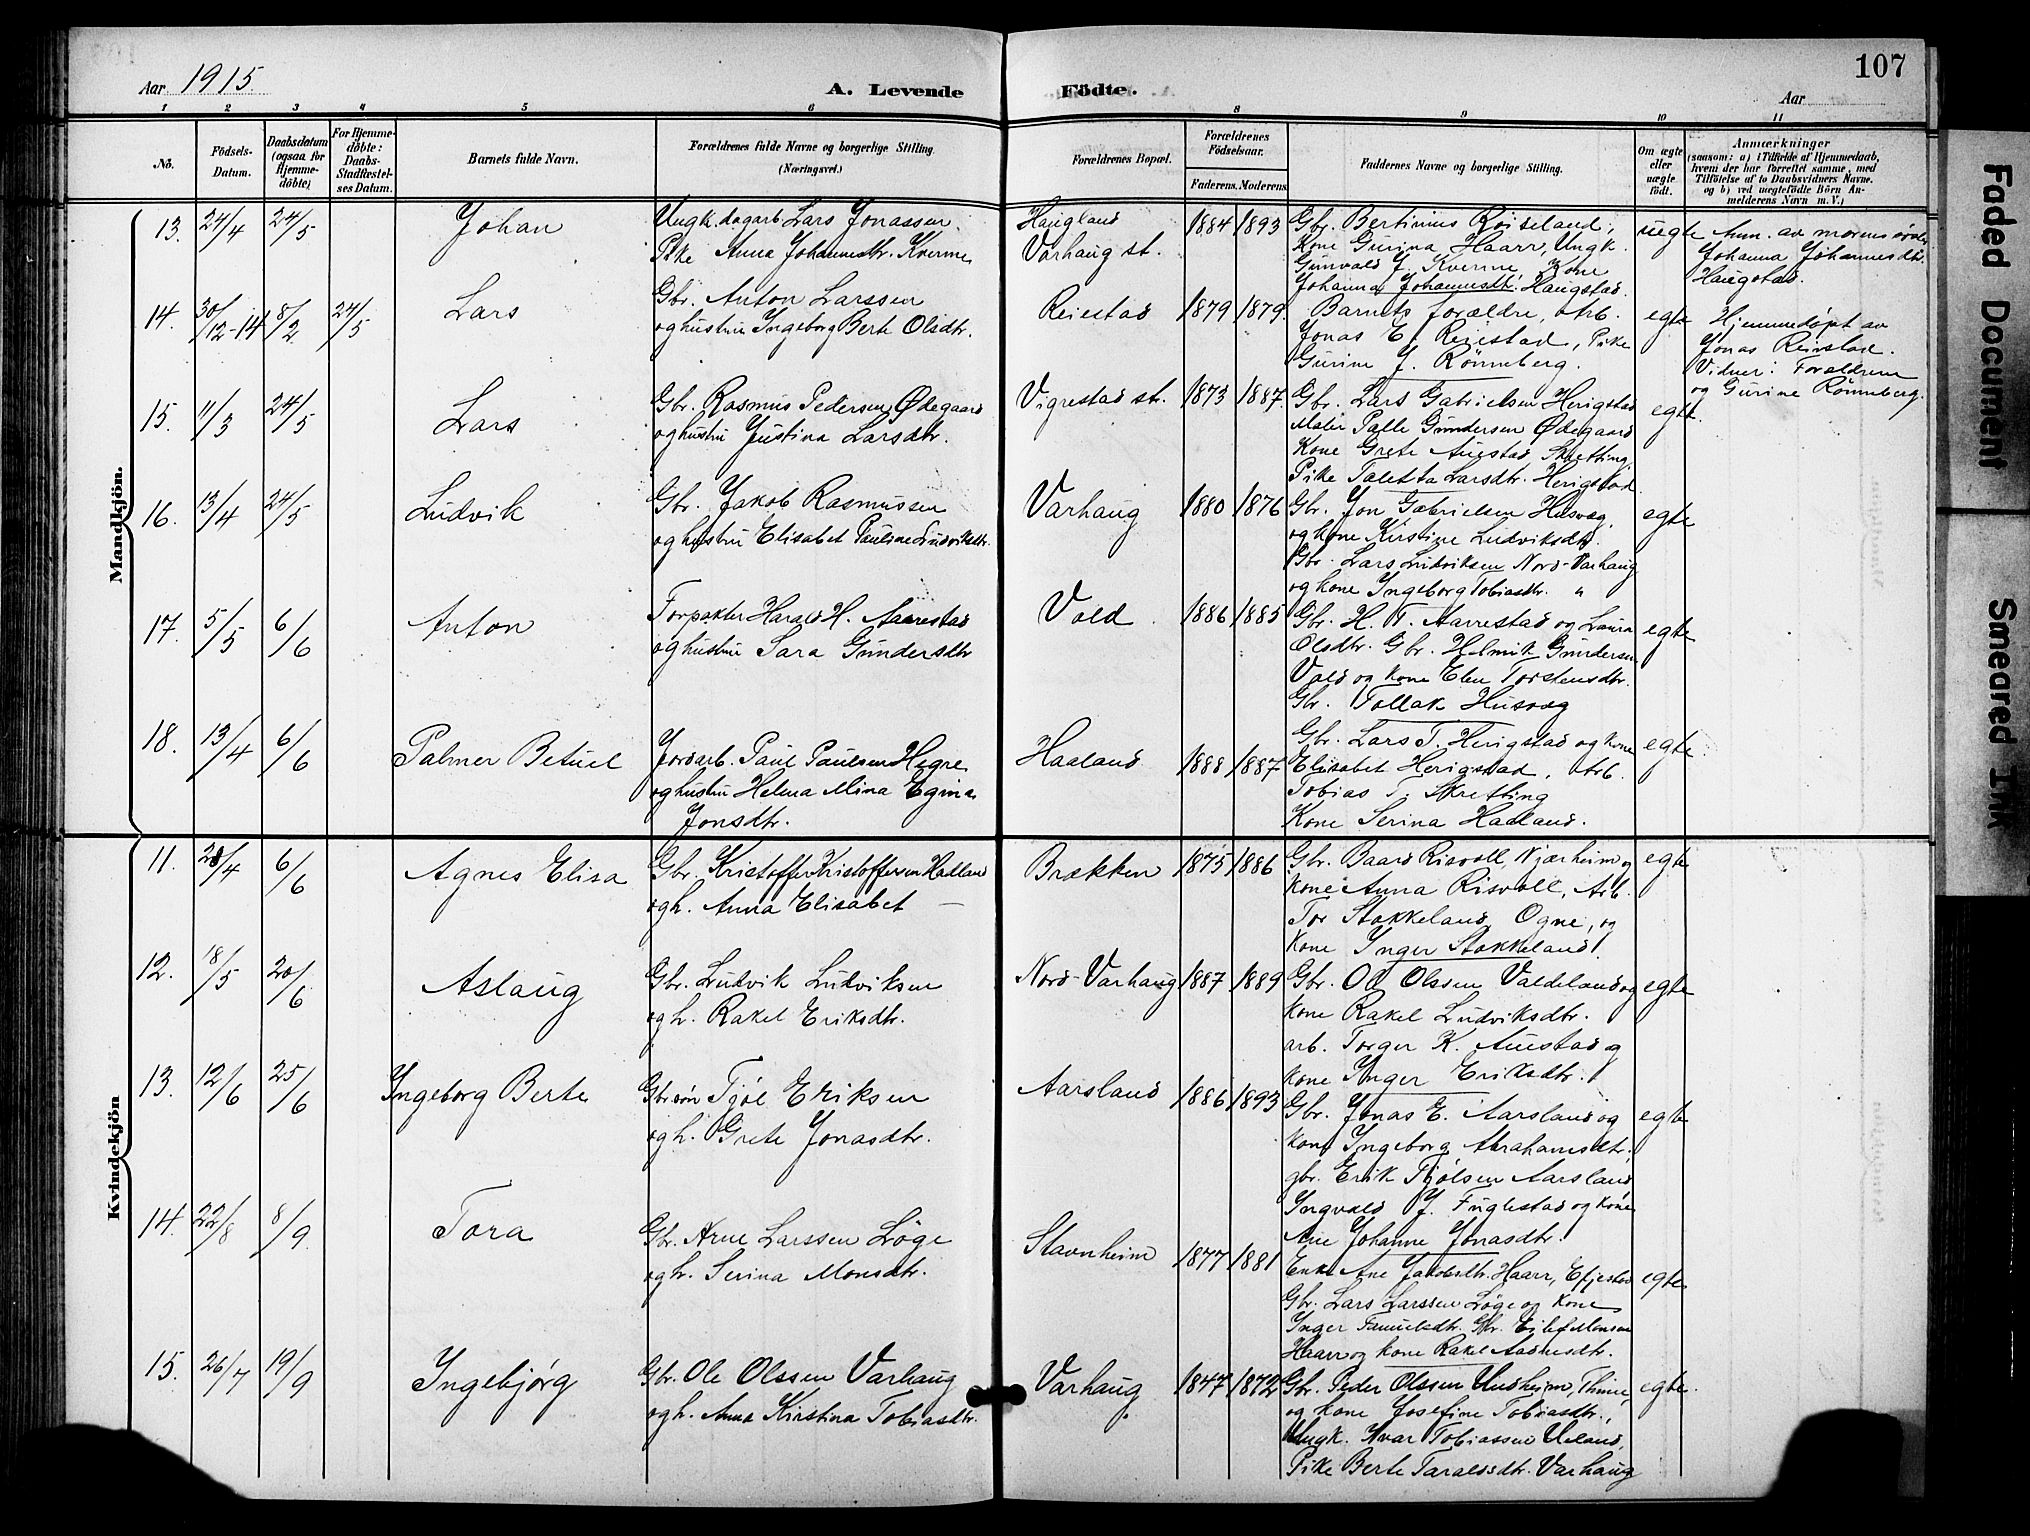 Aar 1915
A. Levende
Födte.
107
Aar
1 2 3 4 5 6 8 9 10 11
No.
Födsels-
Datum.
Daabsdatum
(ogsaa for
Hjemme-
döbte)
For Hjemme-
döbte:
Daabs-
Stadfæstel-
ses Datum.
Barnets fulde Navn.
Forældrenes fulde Navne og borgerlige Stilling.
(Næringsvei.)
Forældrenes Bopæl.
Forældrenes
Födselsaar.
Faderens. Moderens
Faddernes Navne og borgerlige Stilling.
Om ægte
eller
uægte
födt.
Anmærkninger
(saasom: a) i Tilfælde af Hjemmedaab,
hvem der har forrettet samme, med
Tilföielse af to Daabsvidners Navne.
og b) ved uegtefödte Börn An-
melderens Navn m.V.)
Mandkjön.
13. 24/4 24/5 Johan
Ungk. dagarb. Lars Jonassen
Pike Anna Johannesdtr. Kverme
Haugland
Varhaug st.
1884 1893
Gbr. Bertinius Röiseland,
Kone Gurina Haarr, Ungk.
Gunvald J. Kverme, Kone
Johanna Johannesdtr. Haugstad.
uegte
Anm. av morens
Johanna Johannesdtr.
Haugstad.
14. 30/12-14 8/2 24/5 Lars
Gbr. Anton Larssen
og hustru Ingeborg Berte Olsdtr.
Reiestad
1879 1879.
Barnets forældre, Arb.
Jonas E. Reiestad, Pike
Gurine J. Rönneberg.
egte
Hjemmedøpt av
Jonas Reiestad.
Vidner: Forældrene
og Gurine Rönneberg.
15. 11/3 24/5 Lars
Gbr. Rasmus Pedersen Ødegaard
og hustru Justina Larsdtr.
Vigrestad st.
1873 1887.
Gbr. Lars Gabrielsen Herigstad
Maler Palle Gundersen Ødegaard
Kone Grete Auestad Skretting.
Pike Taletta Larsdtr. Herigstad
egte.
16. 13/4 24/5 Ludvik
Gbr. Jakob Rasmussen
og hustru Elisabet Pauline Ludviksdtr.
Varhaug
1880 1876
Gbr. Jon Gabrielsen Husveg,
og kone Kirstine Ludviksdtr.
Gbr. Lars Ludviksen Nord-Varhaug
og kone Ingeborg Tobiasdtr. "
egte
17. 5/5 6/6 Anton
Forpakter Harald H. Aarrestad
og hustru Sara Gundersdtr
Vold
1886 1885
Gbr. H. T. Aarrestad og Laura
Olsdtr. Gbr. Helmik Gundersen
Vold og kone Elen Torstensdtr.
Gbr. Tollak Husveg
egte
18. 13/4 6/6 Palmer Betuel
Jordarb. Paul Paulsen Hegre
og hustru Helena Mina Egina
Jonsdtr.
Haaland
1888 1887
Gbr. Lars T. Herigstad og kone
Elisabet Herigstad, Arb.
Tobias T. Skretting
Kone Serina Haaland.
egte
Kvindekjön
11. 28/4 6/6 Agnes Elisa
Gbr. Kristoffer Kristoffersen Hadland
og h. Anna Elisabet —
Brækken
1875 1886
Gbr. Baard Risvoll, Njærheim og
kone Anna Risvoll, Arb.
Tor Stokkeland, Ogne, og
kone Inger Stokkeland.
egte
12. 18/5 20/6 Aslaug
Gbr. Ludvik Ludviksen
og h. Rakel Eriksdtr.
Nord-Varhaug
1887 1889
Gbr. Ol Olssen Valdeland og
kone Rakel Ludviksdtr.
arb. Torger K. Auestad og
kone Inger Eriksdtr.
egte
13. 12/6 25/6 Ingeborg Berte
Gbr.sön Tjøl Eriksen
og h. Grete Jonasdtr.
Aarsland
1886 1893
Gbr. Jonas E. Aarsland og
kone Ingeborg Abrahamsdtr.
gbr. Erik Tjölsen Aarsland
Ingvald J. Fuglestad og kone
Ane Johanne Jonasdtr.
egte
14. 22/8 8/9 Tora
Gbr. Arne Larssen Löge
og h. Serina Monsdtr.
Stavnheim
1877 1881
Enke Ane Jakobsdtr. Haarr,
Gbr. Lars Larssen Löge og kone
Inger Samuelsdtr. Gbr. Eilef Monsen
Haarr og kone Rakel Aadnesdtr.
egte
15. 26/7 19/9 Ingebjørg
Gbr. Ole Olssen Varhaug
og h. Anna Kirstina Tobiasdtr.
Varhaug.
1847 1872
Gbr. Peder Olssen Undheim, Thime,
og kone Josefine Tobiasdtr.,
Ungk. Ivar Tobiassen Ueland,
Pike Berte Taraldsdtr. Varhaug
egte.
Faded Document
Smeared Ink